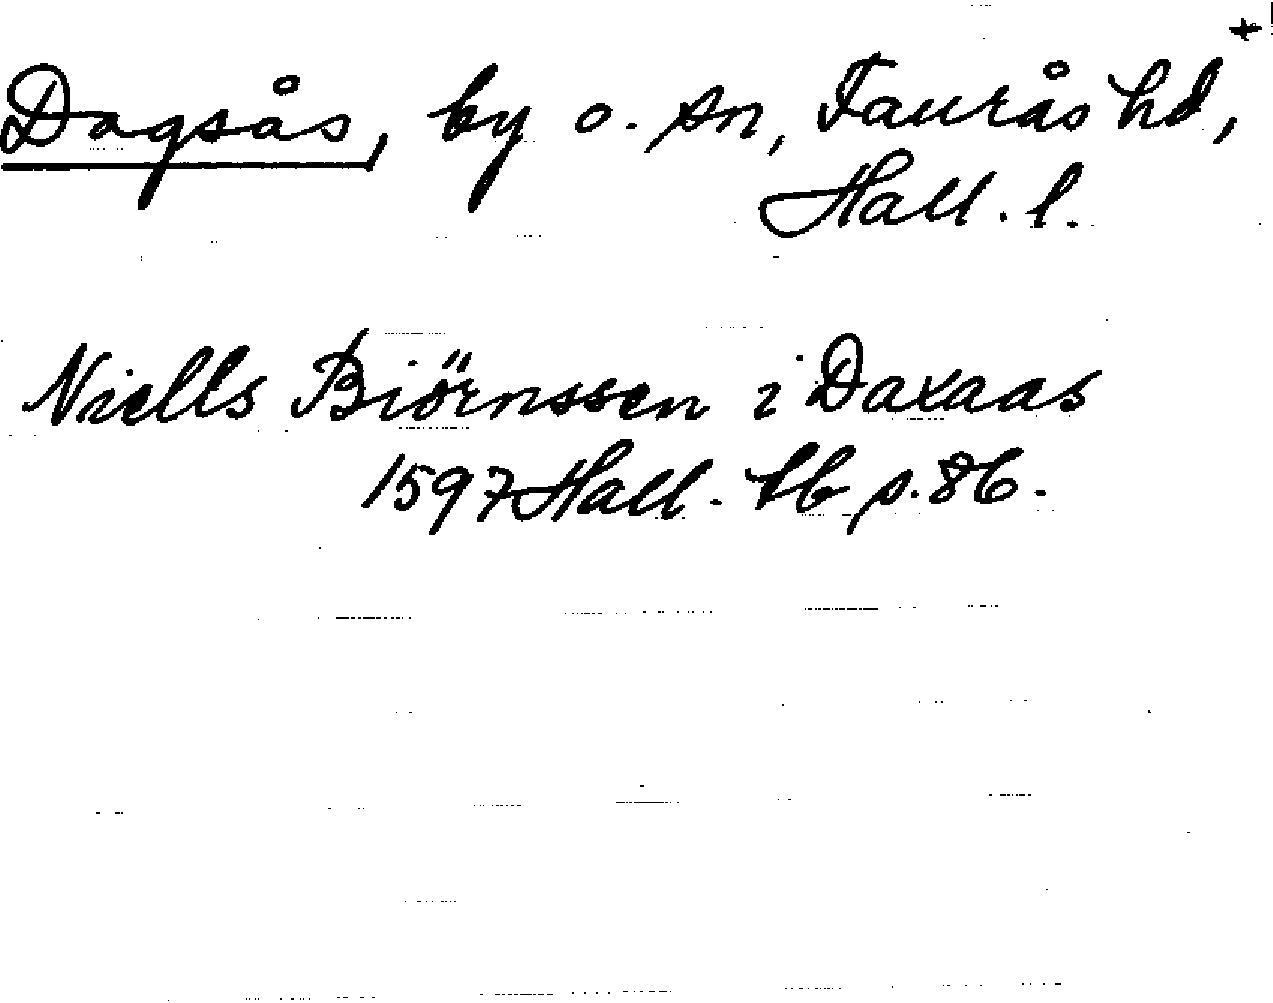 Dagsås, by o. sn, Faurås hd,
Hall. l.
Niells Biörnssen i Daxaas
1597 Hall. tb p. 86.